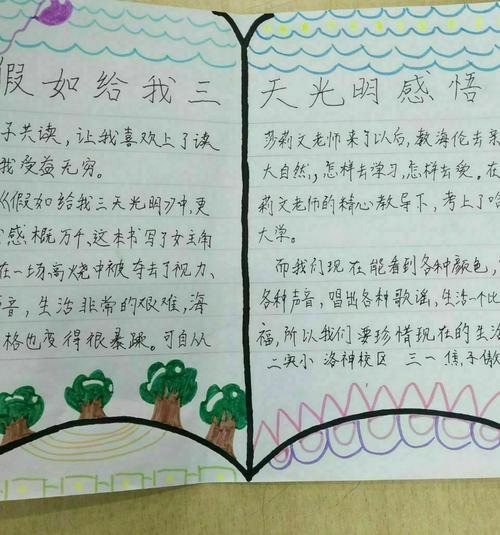 假如给我三
子共读，让我喜欢上了读
我受益无穷。
《假如给我三天光明》中，更
感概万千、这本书写了女主角
在一场高烧中被夺去了视力、
音，生活非常的艰难，海
格也变得很暴躁。可自从
天光明感悟
莎莉文老师来了以后，教海伦去亲
大自然，怎样去学习，怎样去爱。在
莉文老师的精心教导下，考上了哈
大学。
而我们现在能看到各种颜色，
各种声音，唱出各种歌谣，生活一个比
福，所以我们要珍惜现在的生活
二实小 洛神校区 三一 焦子傲